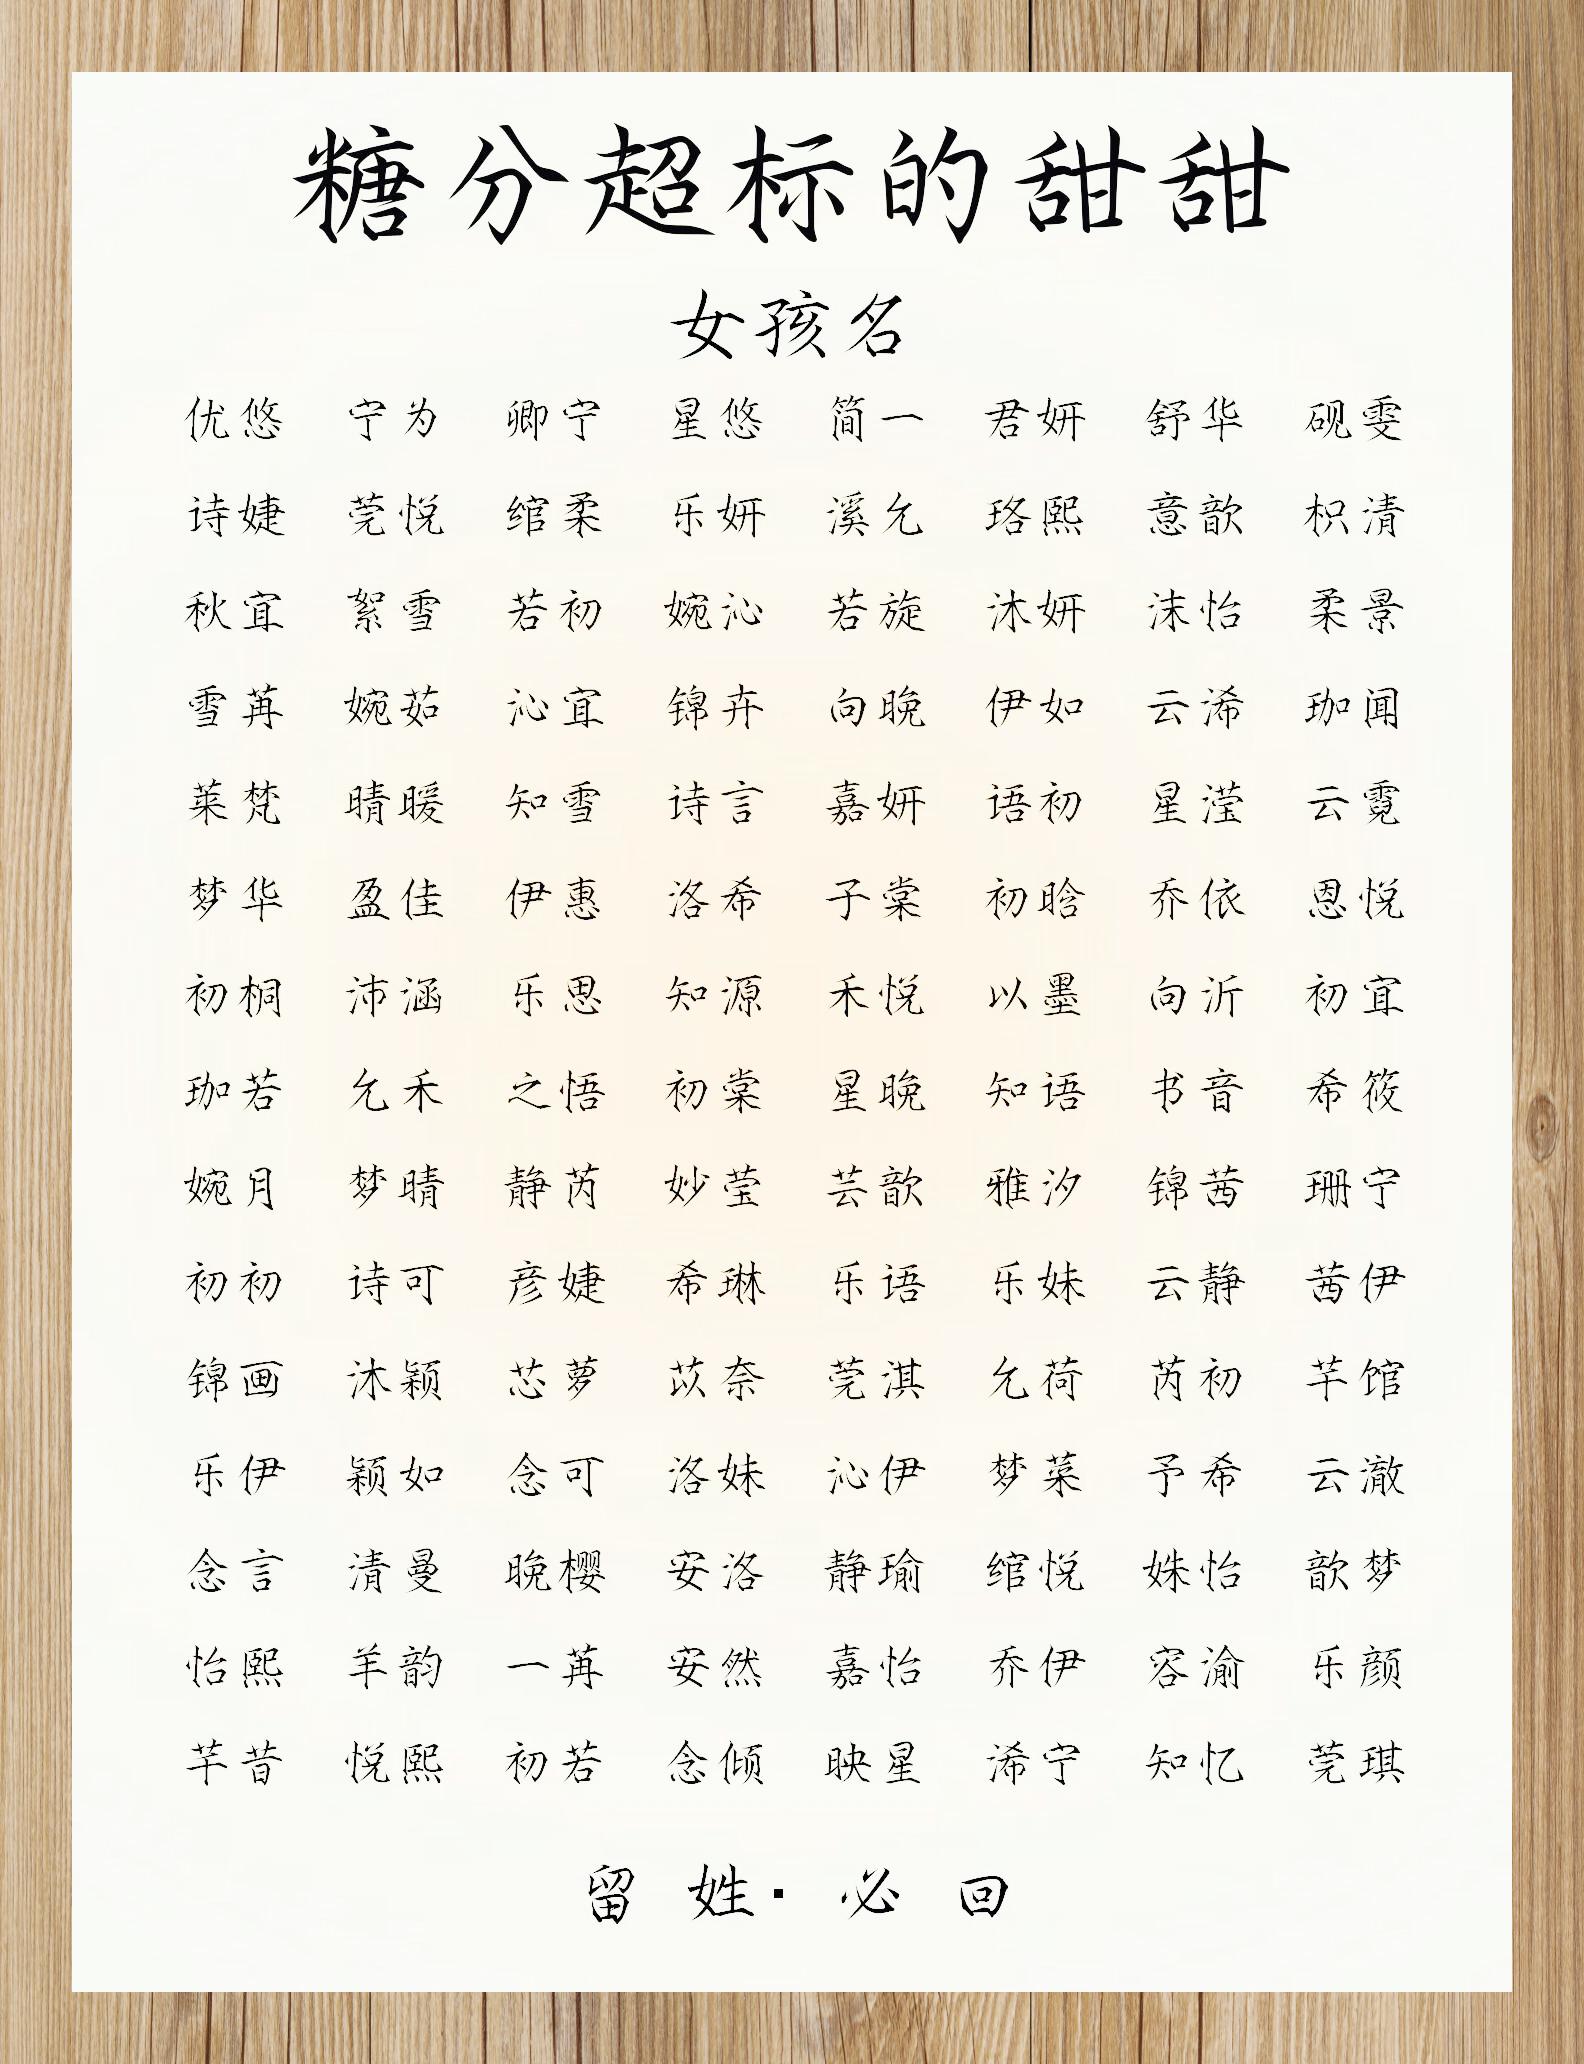 糖分超标的甜甜
女孩名
优悠 宁为 卿宁 星悠 简一 君妍 舒华 砚雯
诗婕 莞悦 绾柔 乐妍 溪允 珞熙 意歆 枳清
秋宜 絮雪 若初 婉沁 若旋 沐妍 沫怡 柔景
雪苒 婉茹 沁宜 锦卉 向晚 伊如 云浠 珈闻
莱梵 晴暖 知雪 诗言 嘉妍 语初 星滢 云霓
梦华 盈佳 伊惠 洛希 子棠 初晗 乔依 恩悦
初桐 沛涵 乐思 知源 禾悦 以墨 向沂 初宜
珈若 允禾 之悟 初棠 星晚 知语 书音 希筱
婉月 梦晴 静芮 妙莹 芸歆 雅汐 锦茜 珊宁
初初 诗可 彦婕 希琳 乐语 乐妹 云静 茜伊
锦画 沐颖 芯萝 苡奈 莞淇 允荷 芮初 芊馆
乐伊 颖如 念可 洛妹 沁伊 梦菜 予希 云澈
念言 清曼 晚樱 安洛 静瑜 绾悦 姝怡 歆梦
怡熙 羊韵 一苒 安然 嘉怡 乔伊 容渝 乐颜
芊昔 悦熙 初若 念倾 映星 浠宁 知忆 莞琪
留姓·必回